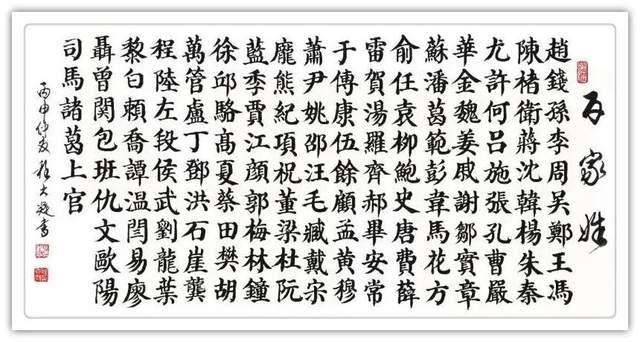 百家姓
趙錢孫李周吳鄭王馮
陳褚衛蔣沈韓楊朱秦
尤許何呂施張孔曹嚴
華金魏姜戚謝鄒竇章
蘇潘葛範彭韋馬花方
俞任袁柳鮑史唐費薛
雷賀湯羅齊郝畢安常
于傅康伍餘顧孟黃穆
蕭尹姚邵汪毛臧戴宋
龐熊紀項祝董梁杜阮
藍季賈江顏郭梅林鐘
徐邱駱髙夏蔡田樊胡
萬管盧丁鄧洪石崖龔
程陸左段侯武劉龍葉
黎白賴喬譚溫閆易廖
聶曾関包班仇文歐陽
司馬諸葛上官
丙申仲夏